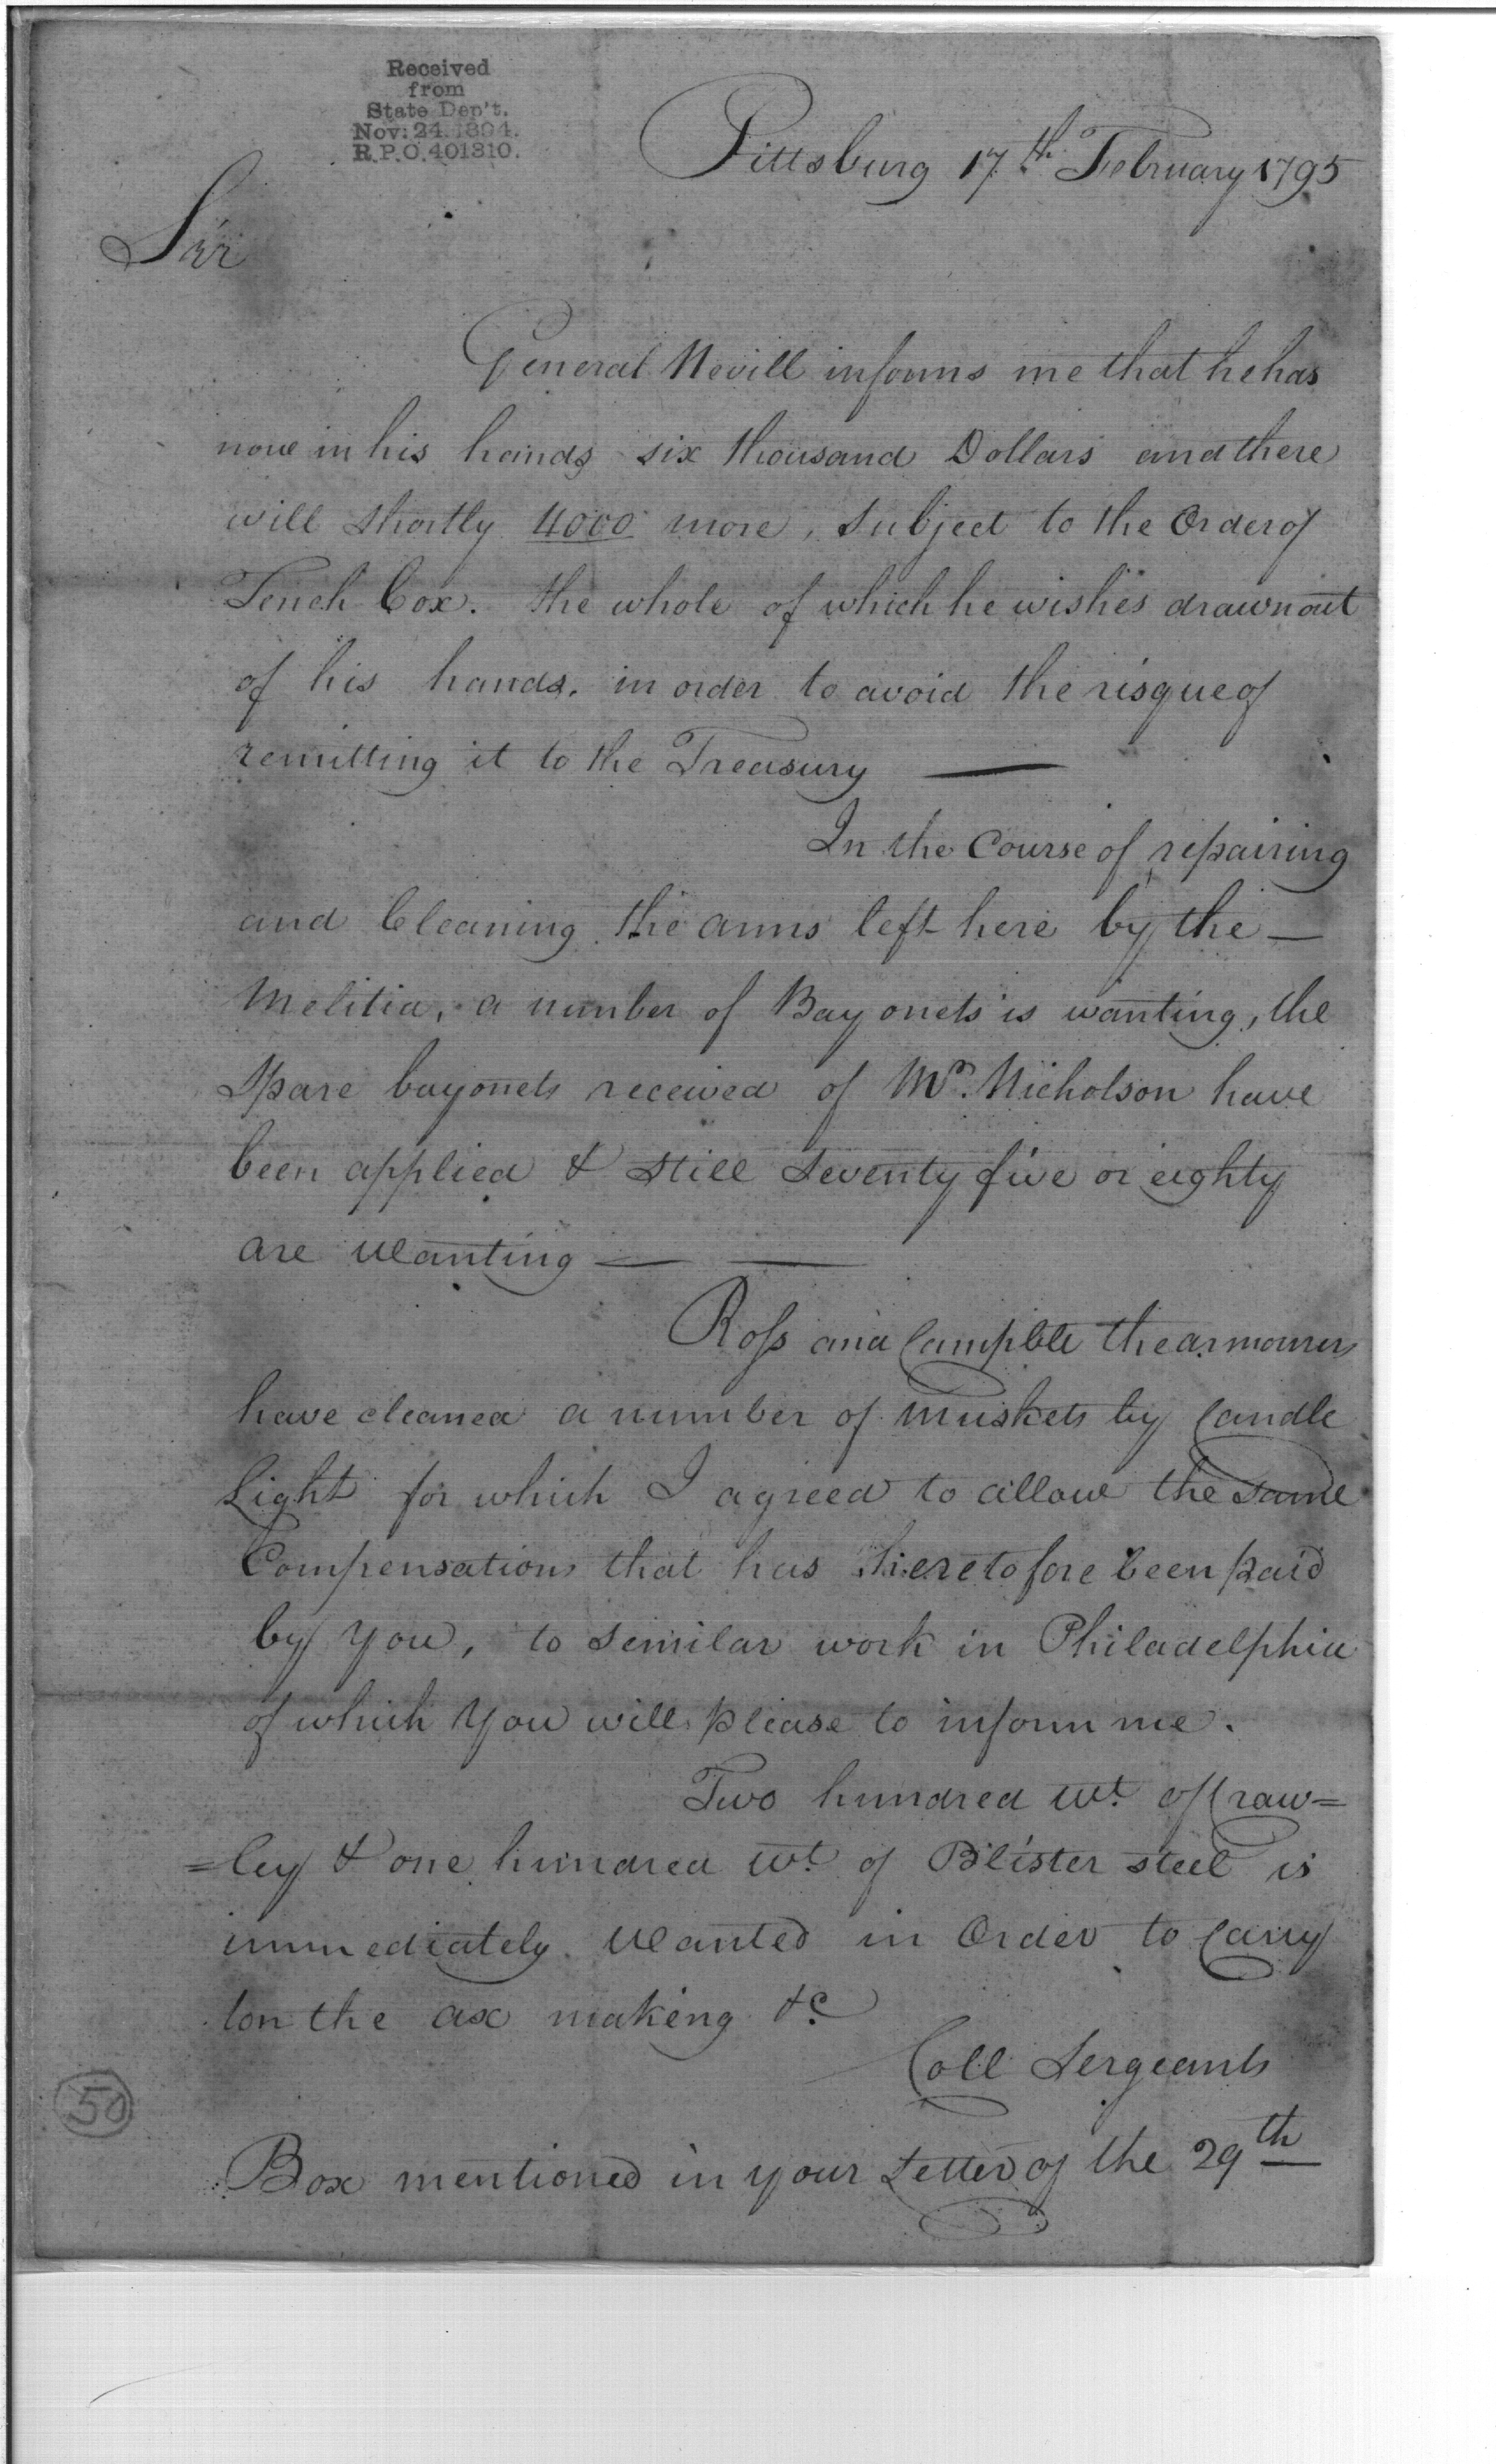 Received
from
State Dep't.
Nov: 24. 1894.
R.P.O. 401310.
Pittsburg 17.th February 1795
Sir
General Nevill informs me that he has
now in his hands six thousand Dollars and there
will shortly 4000 more, subject to the Order of
Tench Cox. the whole of which he wishes drawn out
of his hands. in order to avoid the risque of
remitting it to the Treasury —
In the Course of repairing
and Cleaning the arms left here by the —
Melitia, a number of Bayonets is wanting, the
Spare bayonets received of Mr. Nicholson have
been applied & still seventy five or eighty
are wanting — —
Ross and Campble the armourers
have cleaned a number of muskets by Candle
Light for which I agreed to allow the same
Compensation that has heretofore been paid
by You, to semilar work in Philadelphia
of which You will please to inform me.
Two hundred wt. of Craw=
=ley & one hundred wt. of Blister steel is
immediately wanted in Order to Carry
on the ax making &c
Coll Sergeants
Box mentioned in your Letter of the 29th
50